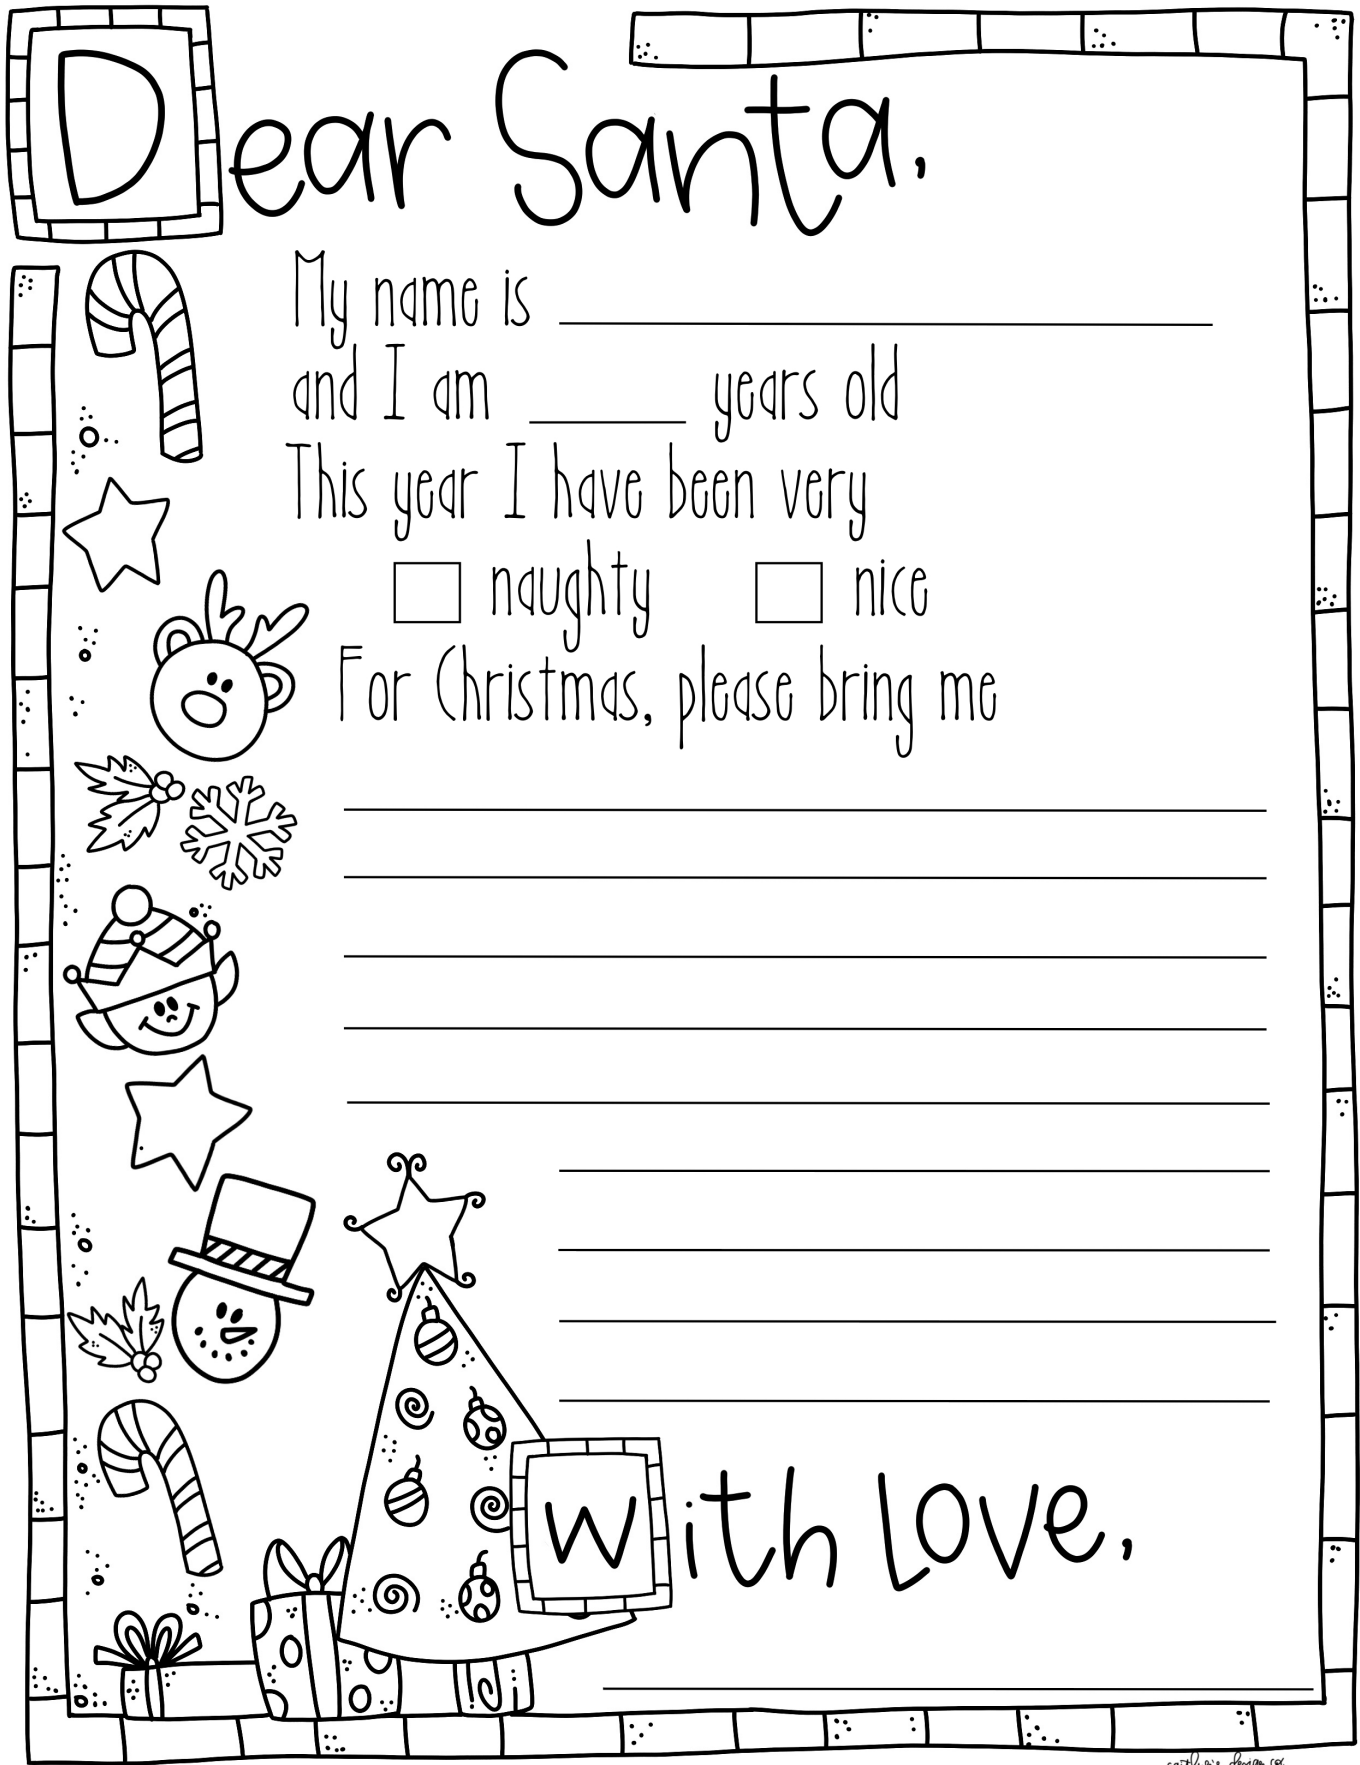 Dear Santa,
My name is
and I am years old
This year I have been very
naughty nice
For Christmas, please bring me
With Love,